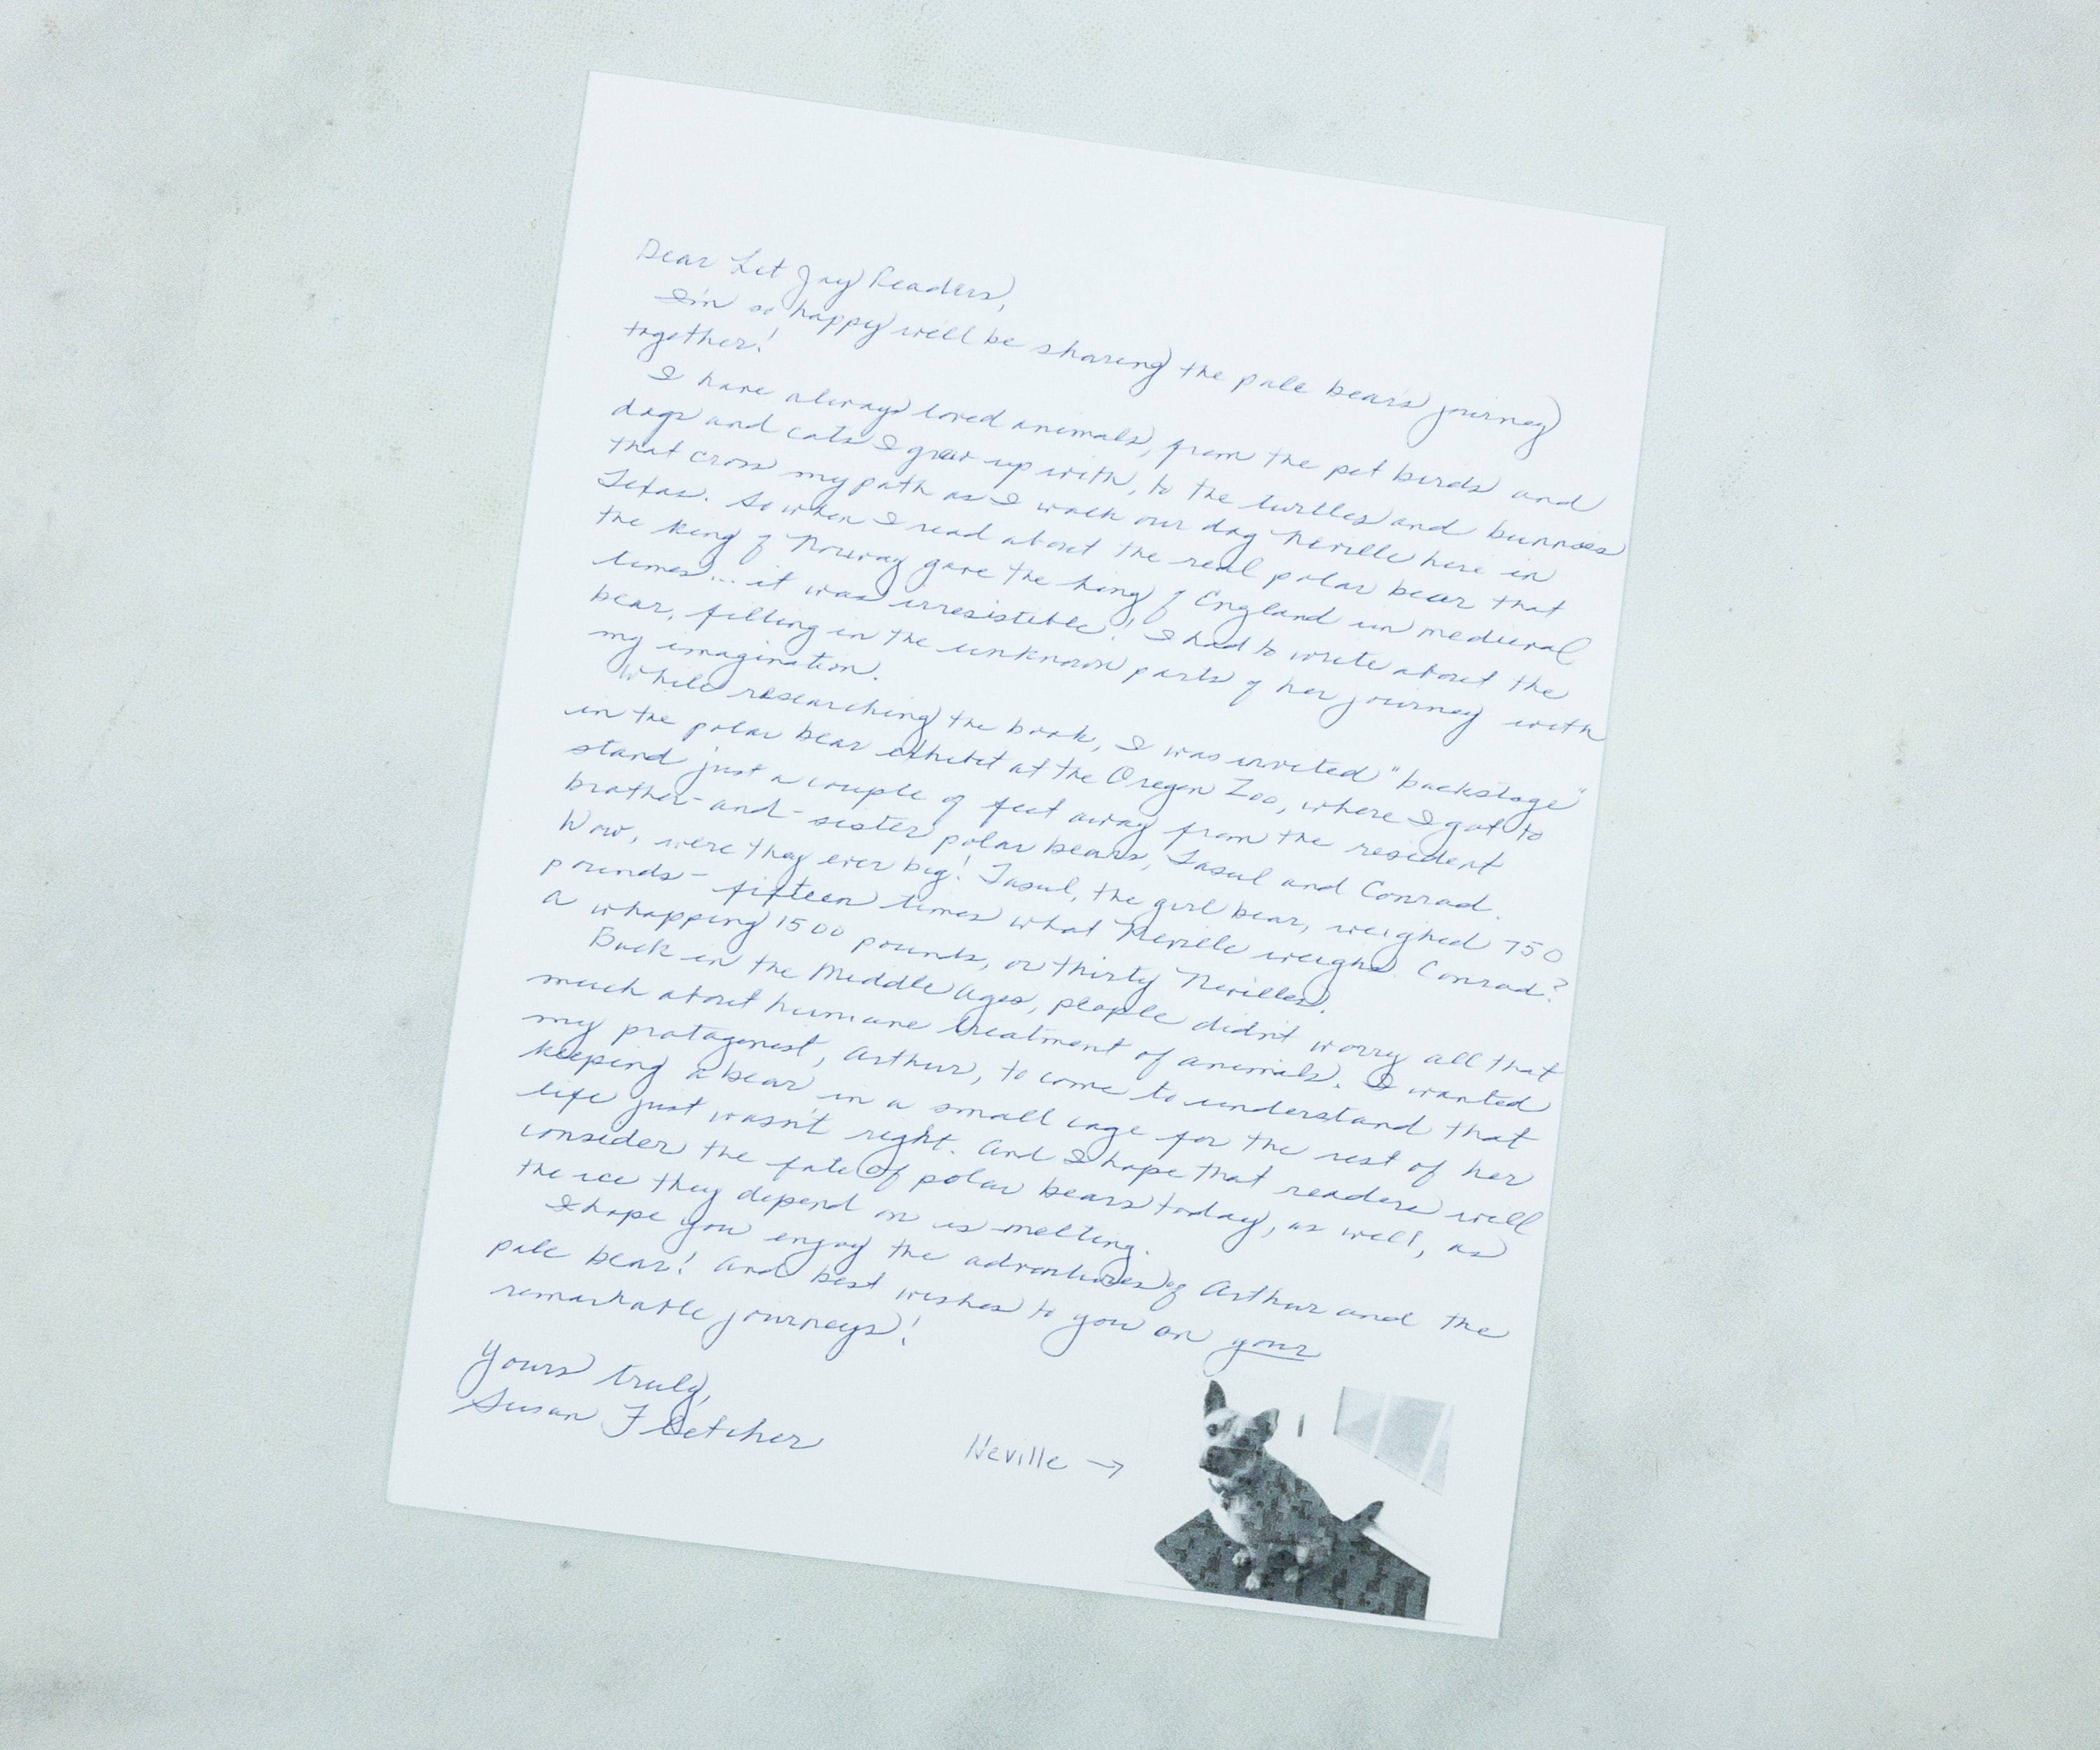 Dear Lit Joy Readers,
I'm so happy we'll be sharing the pale bear's journey
together!
I have always loved animals, from the pet birds and
dogs and cats I grew up with, to the turtles and bunnies
that cross my path as I walk our dog Neville here in
Texas. So when I read about the real polar bear that
the king of Norway gave the king of England in medieval
times... it was irresistible! I had to write about the
bear, filling in the unknown parts of her journey with
my imagination.
While researching the book, I was invited "backstage"
in the polar bear exhibit at the Oregon Zoo, where I got to
stand just a couple of feet away from the resident
brother-and-sister polar bears, Tasul and Conrad.
Wow, were they ever big! Tasul, the girl bear, weighed 750
pounds - fifteen times what Neville weighs. Conrad?
A whopping 1500 pounds, or thirty Nevilles.
Back in the Middle Ages, people didn't worry all that
much about humane treatment of animals. I wanted
my protagonist, Arthur, to come to understand that
keeping a bear in a small cage for the rest of her
life just wasn't right. And I hope that readers will
consider the fate of polar bears today, as well, as
the ice they depend on is melting.
I hope you enjoy the adventures of Arthur and the
pale bear! And best wishes to you on your
remarkable journeys!
Yours truly,
Susan Fletcher
Neville →